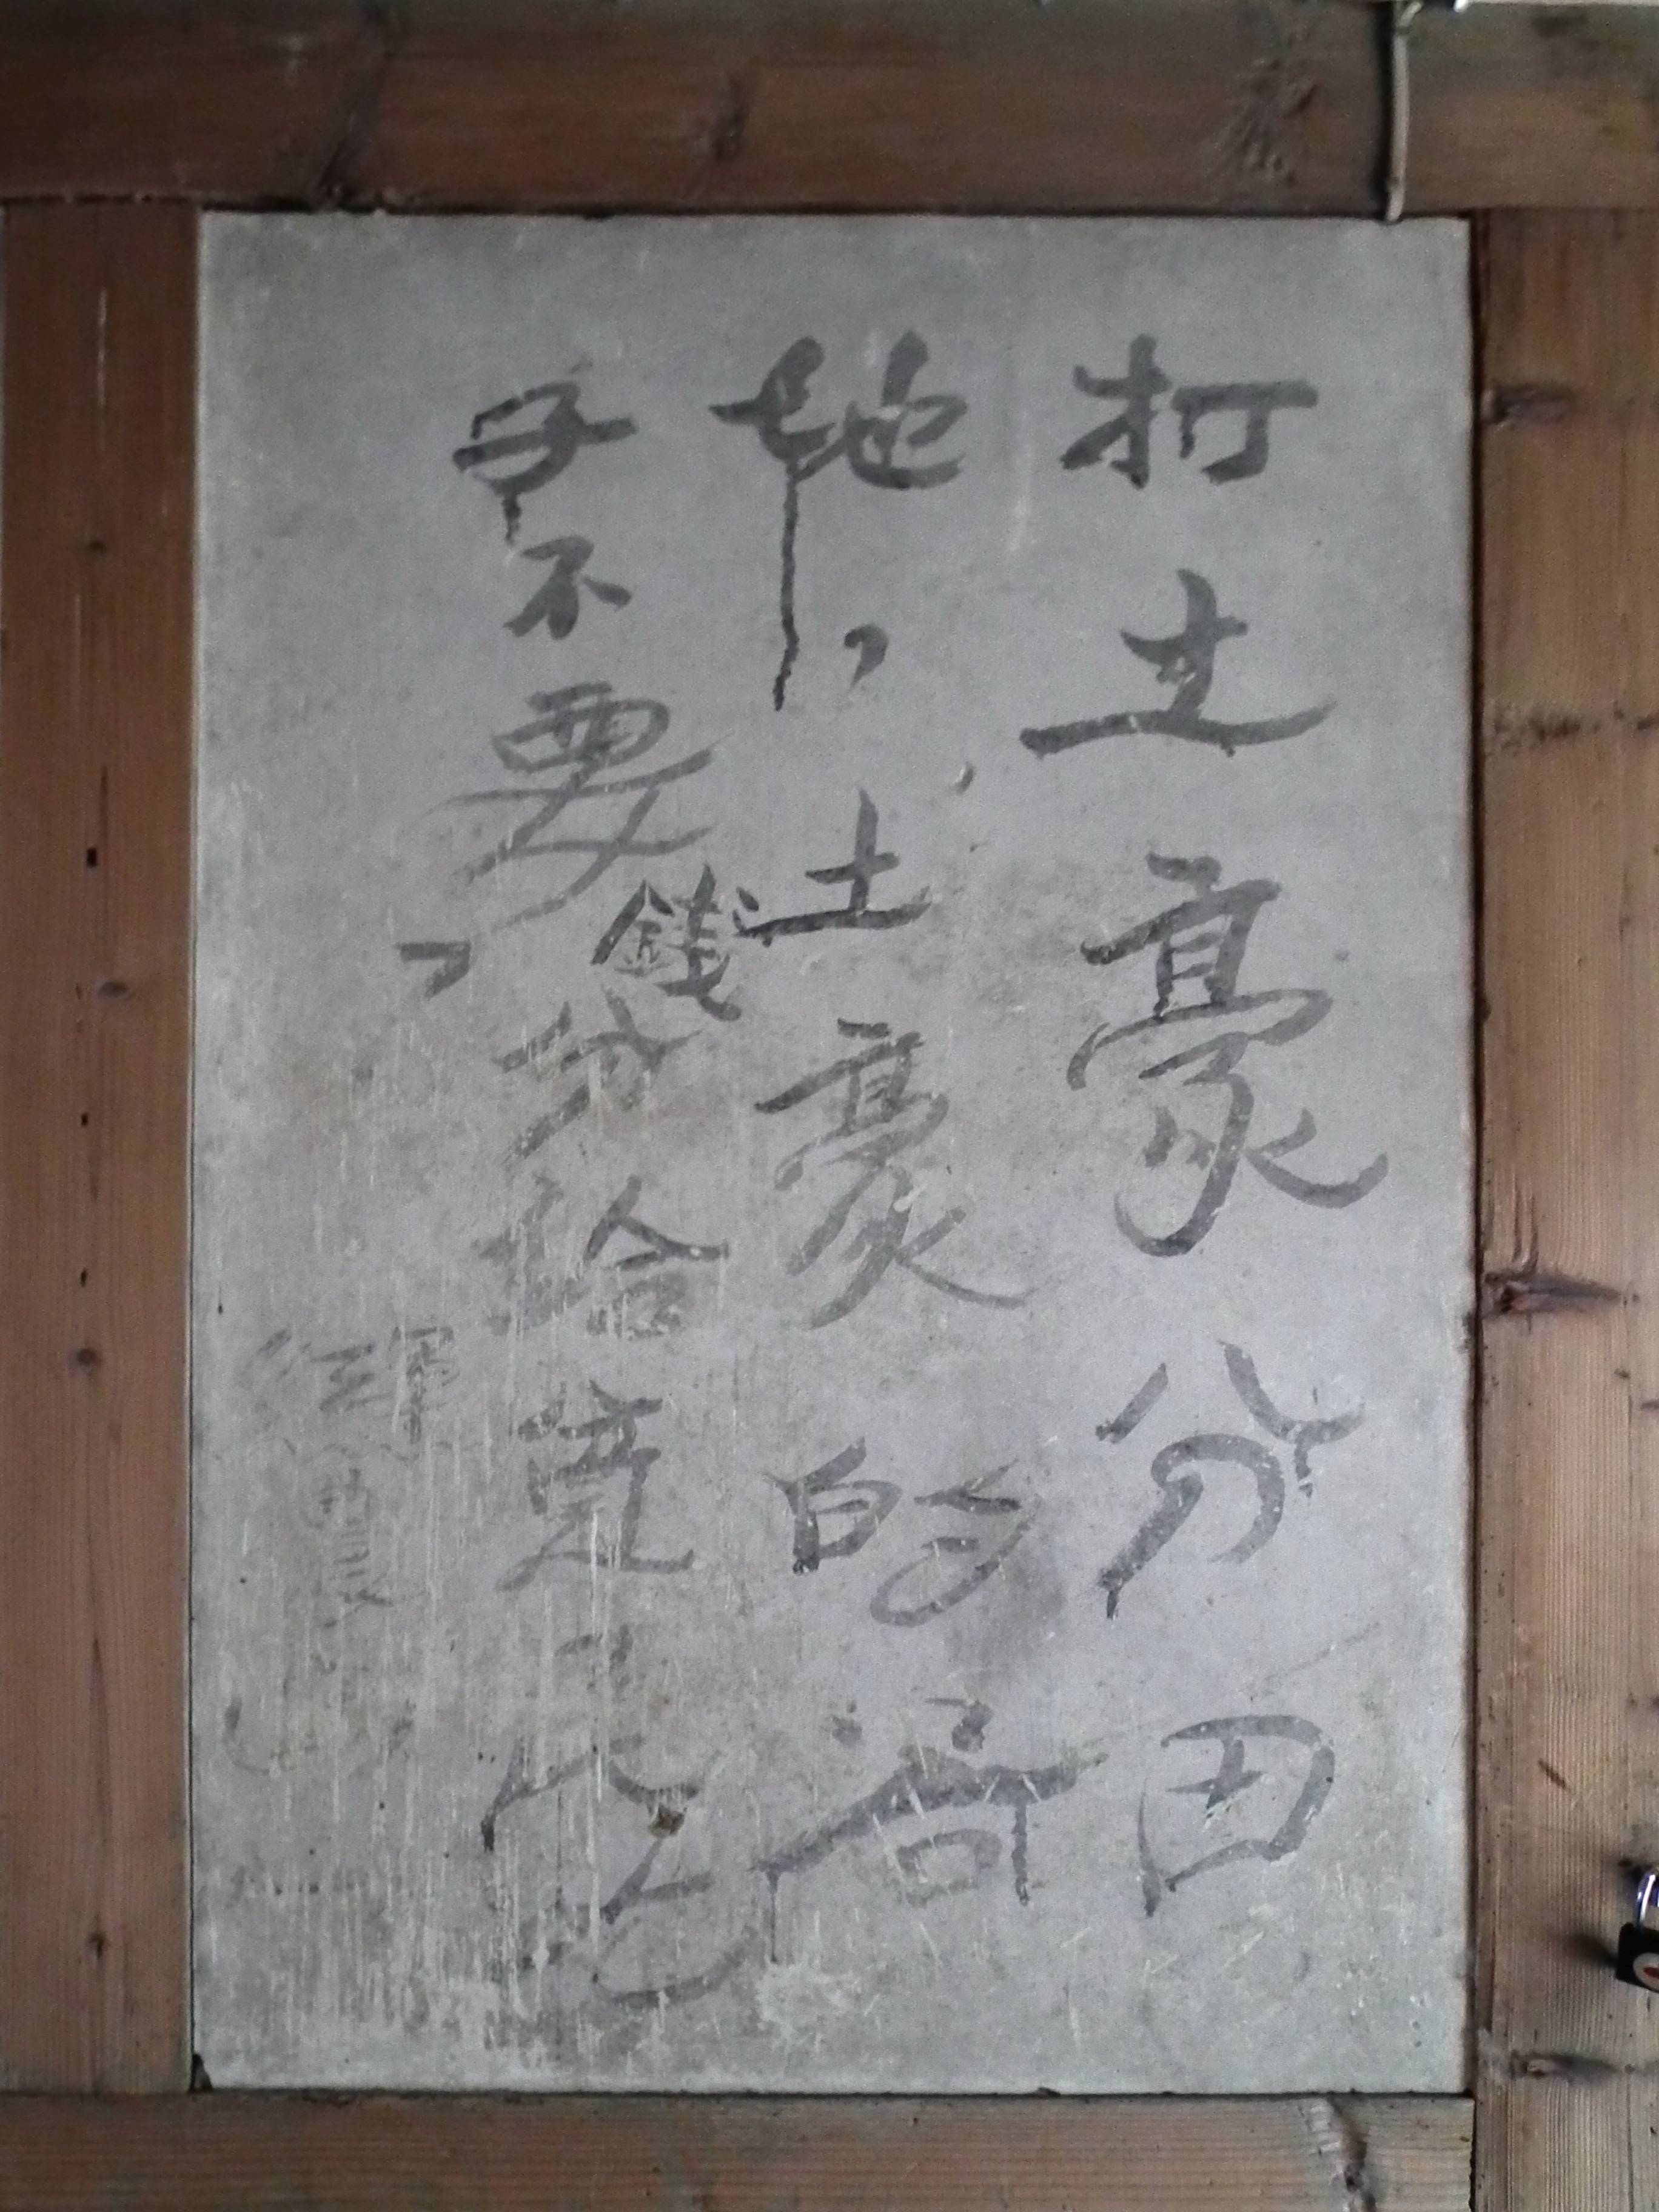 打土豪分田
地，土豪的谷
子不要錢，分給窮人吃